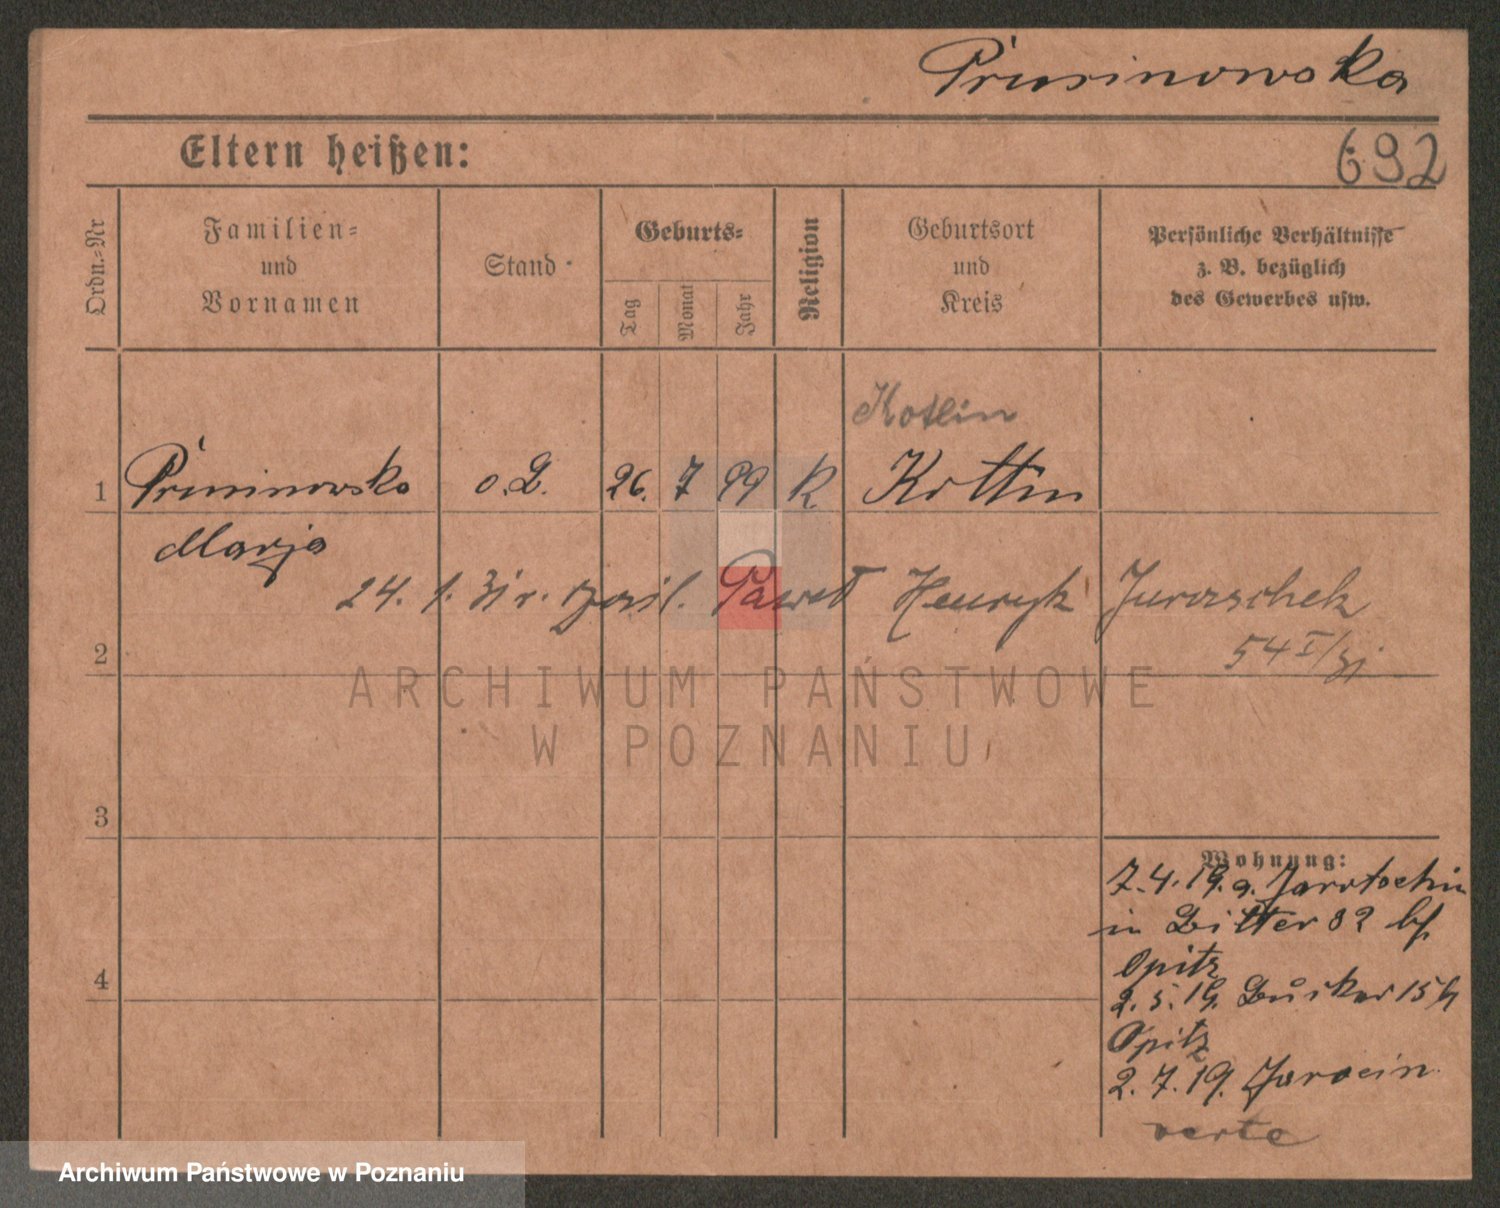 Prusinowska
Eltern heißen:
692
Ordn.-Nr
Familien-
und
Vornamen
Stand
Geburts-
Tag
Monat
Jahr
Religion
Geburtsort
und
Kreis
Persönliche Verhältnisse
z. B. bezüglich
des Gewerbes usw.
Kotlin
1 Prusinowska o. B. 26. 7 99 K Kottlin
Marja
24. 1. 31 r. Paweł Henryk Juraschek
54 I/31
2
ARCHIWUM PAŃSTWOWE
W POZNANIU
3
Wohnung:
7.4.19. a. Jarotschin
in Bitter 82 bf
Opitz
4
2.5.19. 15
Opitz
2.7.19. Jarocin
verte
Archiwum Państwowe w Poznaniu